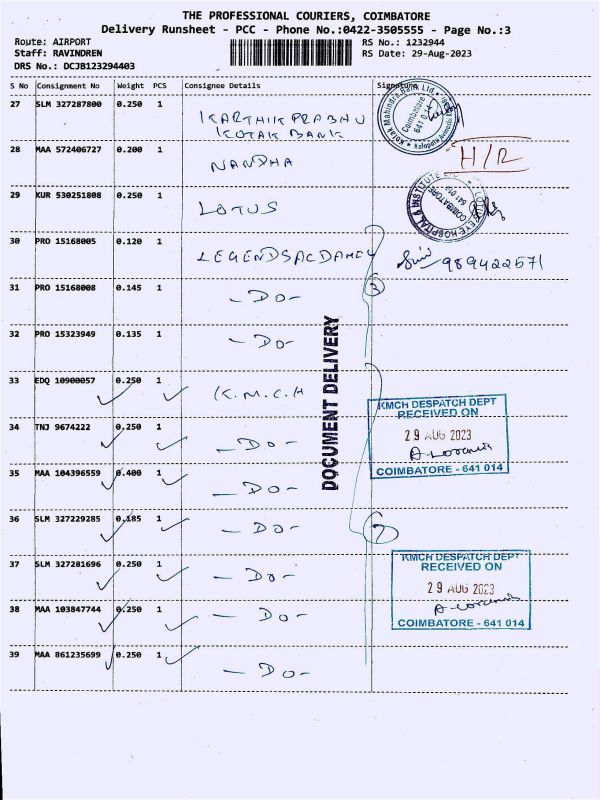 THE PROFESSIONAL COURIERS, COIMBATORE
Delivery Runsheet - PCC - Phone No.:0422-3505555 - Page No.:3
Route: AIRPORT
Staff: RAVINDREN
DRS No.: DCJB123294403
RS No.: 1232944
RS Date: 29-Aug-2023
S No Consignment No Weight PCS Consignee Details Signature
27 SLM 327287800 0.250 1 KARTHIK PRABHU
KOTAK BANK
Kotak Mahindra Bank Ltd.
Coimbatore
641 014
28 MAA 572406727 0.200 1 NANDHA H/R
29 KUR 530251808 0.250 1 LOTUS
LOTUS EYE HOSPITAL & INSTITUTE
COIMBATORE
641 014
30 PRO 15168005 0.120 1 989422571
31 PRO 15168008 0.145 1 -DO- 3
32 PRO 15323949 0.135 1 -DO-
DOCUMENT DELIVERY
33 EDQ 10900057 0.250 1 K.M.C.H
KMCH DESPATCH DEPT
RECEIVED ON
34 TNJ 9674222 0.250 1 -DO- 29 AUG 2023
35 MAA 104396559 0.400 1 -DO- COIMBATORE - 641 014
36 SLM 327229285 0.185 1 -DO- 7
37 SLM 327281696 0.250 1 -DO-
KMCH DESPATCH DEPT
RECEIVED ON
29 AUG 2023
38 MAA 103847744 0.250 1 -DO- COIMBATORE - 641 014
39 MAA 861235699 0.250 1 -DO-